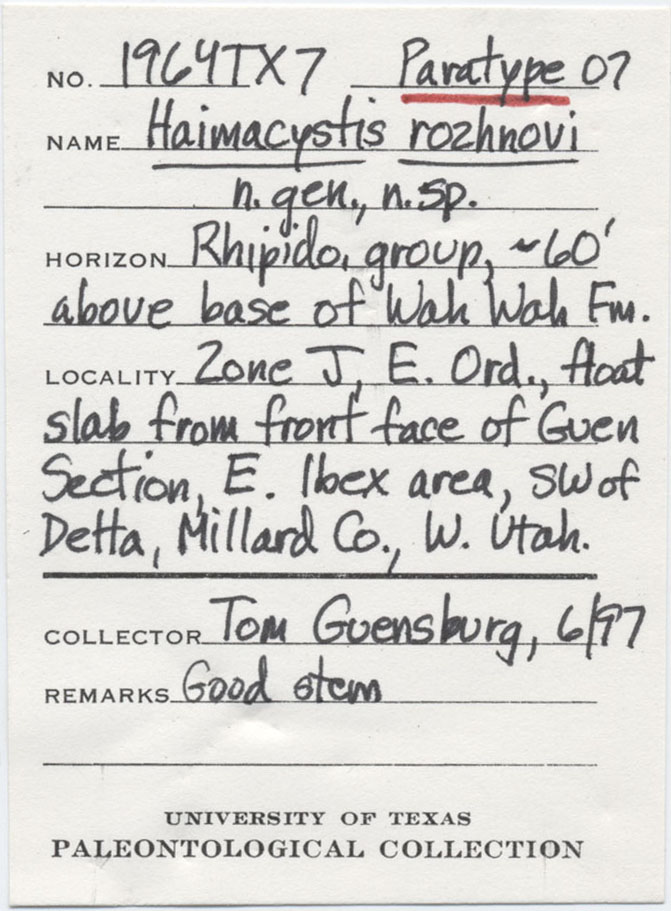 NO. 1964TX7 Paratype 07
NAME Haimacystis rozhnovi
n. gen., n. sp.
HORIZON Rhipido. group, ~60'
above base of Wah Wah Fm.
LOCALITY Zone J, E. Ord., float
slab from front face of Guen
Section, E. Ibex area, SW of
Delta, Millard Co., W. Utah.
COLLECTOR Tom Guensburg, 6/97
REMARKS Good stem
UNIVERSITY OF TEXAS
PALEONTOLOGICAL COLLECTION